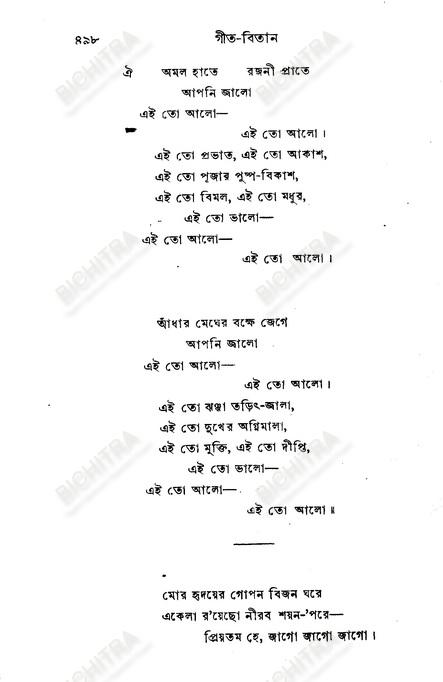 ৪৯৮ গীত-বিতান
ঐ অমল হাতে রজনী প্রাতে
আপনি জালো
এই তো আলো—
এই তো আলো।
এই তো প্রভাত, এই তো আকাশ,
এই তো পূজার পুষ্প-বিকাশ,
এই তো বিমল, এই তো মধুর,
এই তো ভালো—
এই তো আলো—
এই তো আলো।
আঁধার মেঘের বক্ষে জেগে
আপনি জালো
এই তো আলো—
এই তো আলো।
এই তো ঝঞ্ঝা তড়িৎ-জালা,
এই তো দুখের অগ্নিমালা,
এই তো মুক্তি, এই তো দীপ্তি,
এই তো ভালো—
এই তো আলো—
এই তো আলো॥
মোর হৃদয়ের গোপন বিজন ঘরে
একেলা র'য়েছো নীরব শয়ন-'পরে—
প্রিয়তম হে, জাগো জাগো জাগো।
BICHITRA
BICHITRA
BICHITRA
BICHITRA
BICHITRA
BICHITRA
BICHITRA
BICHITRA